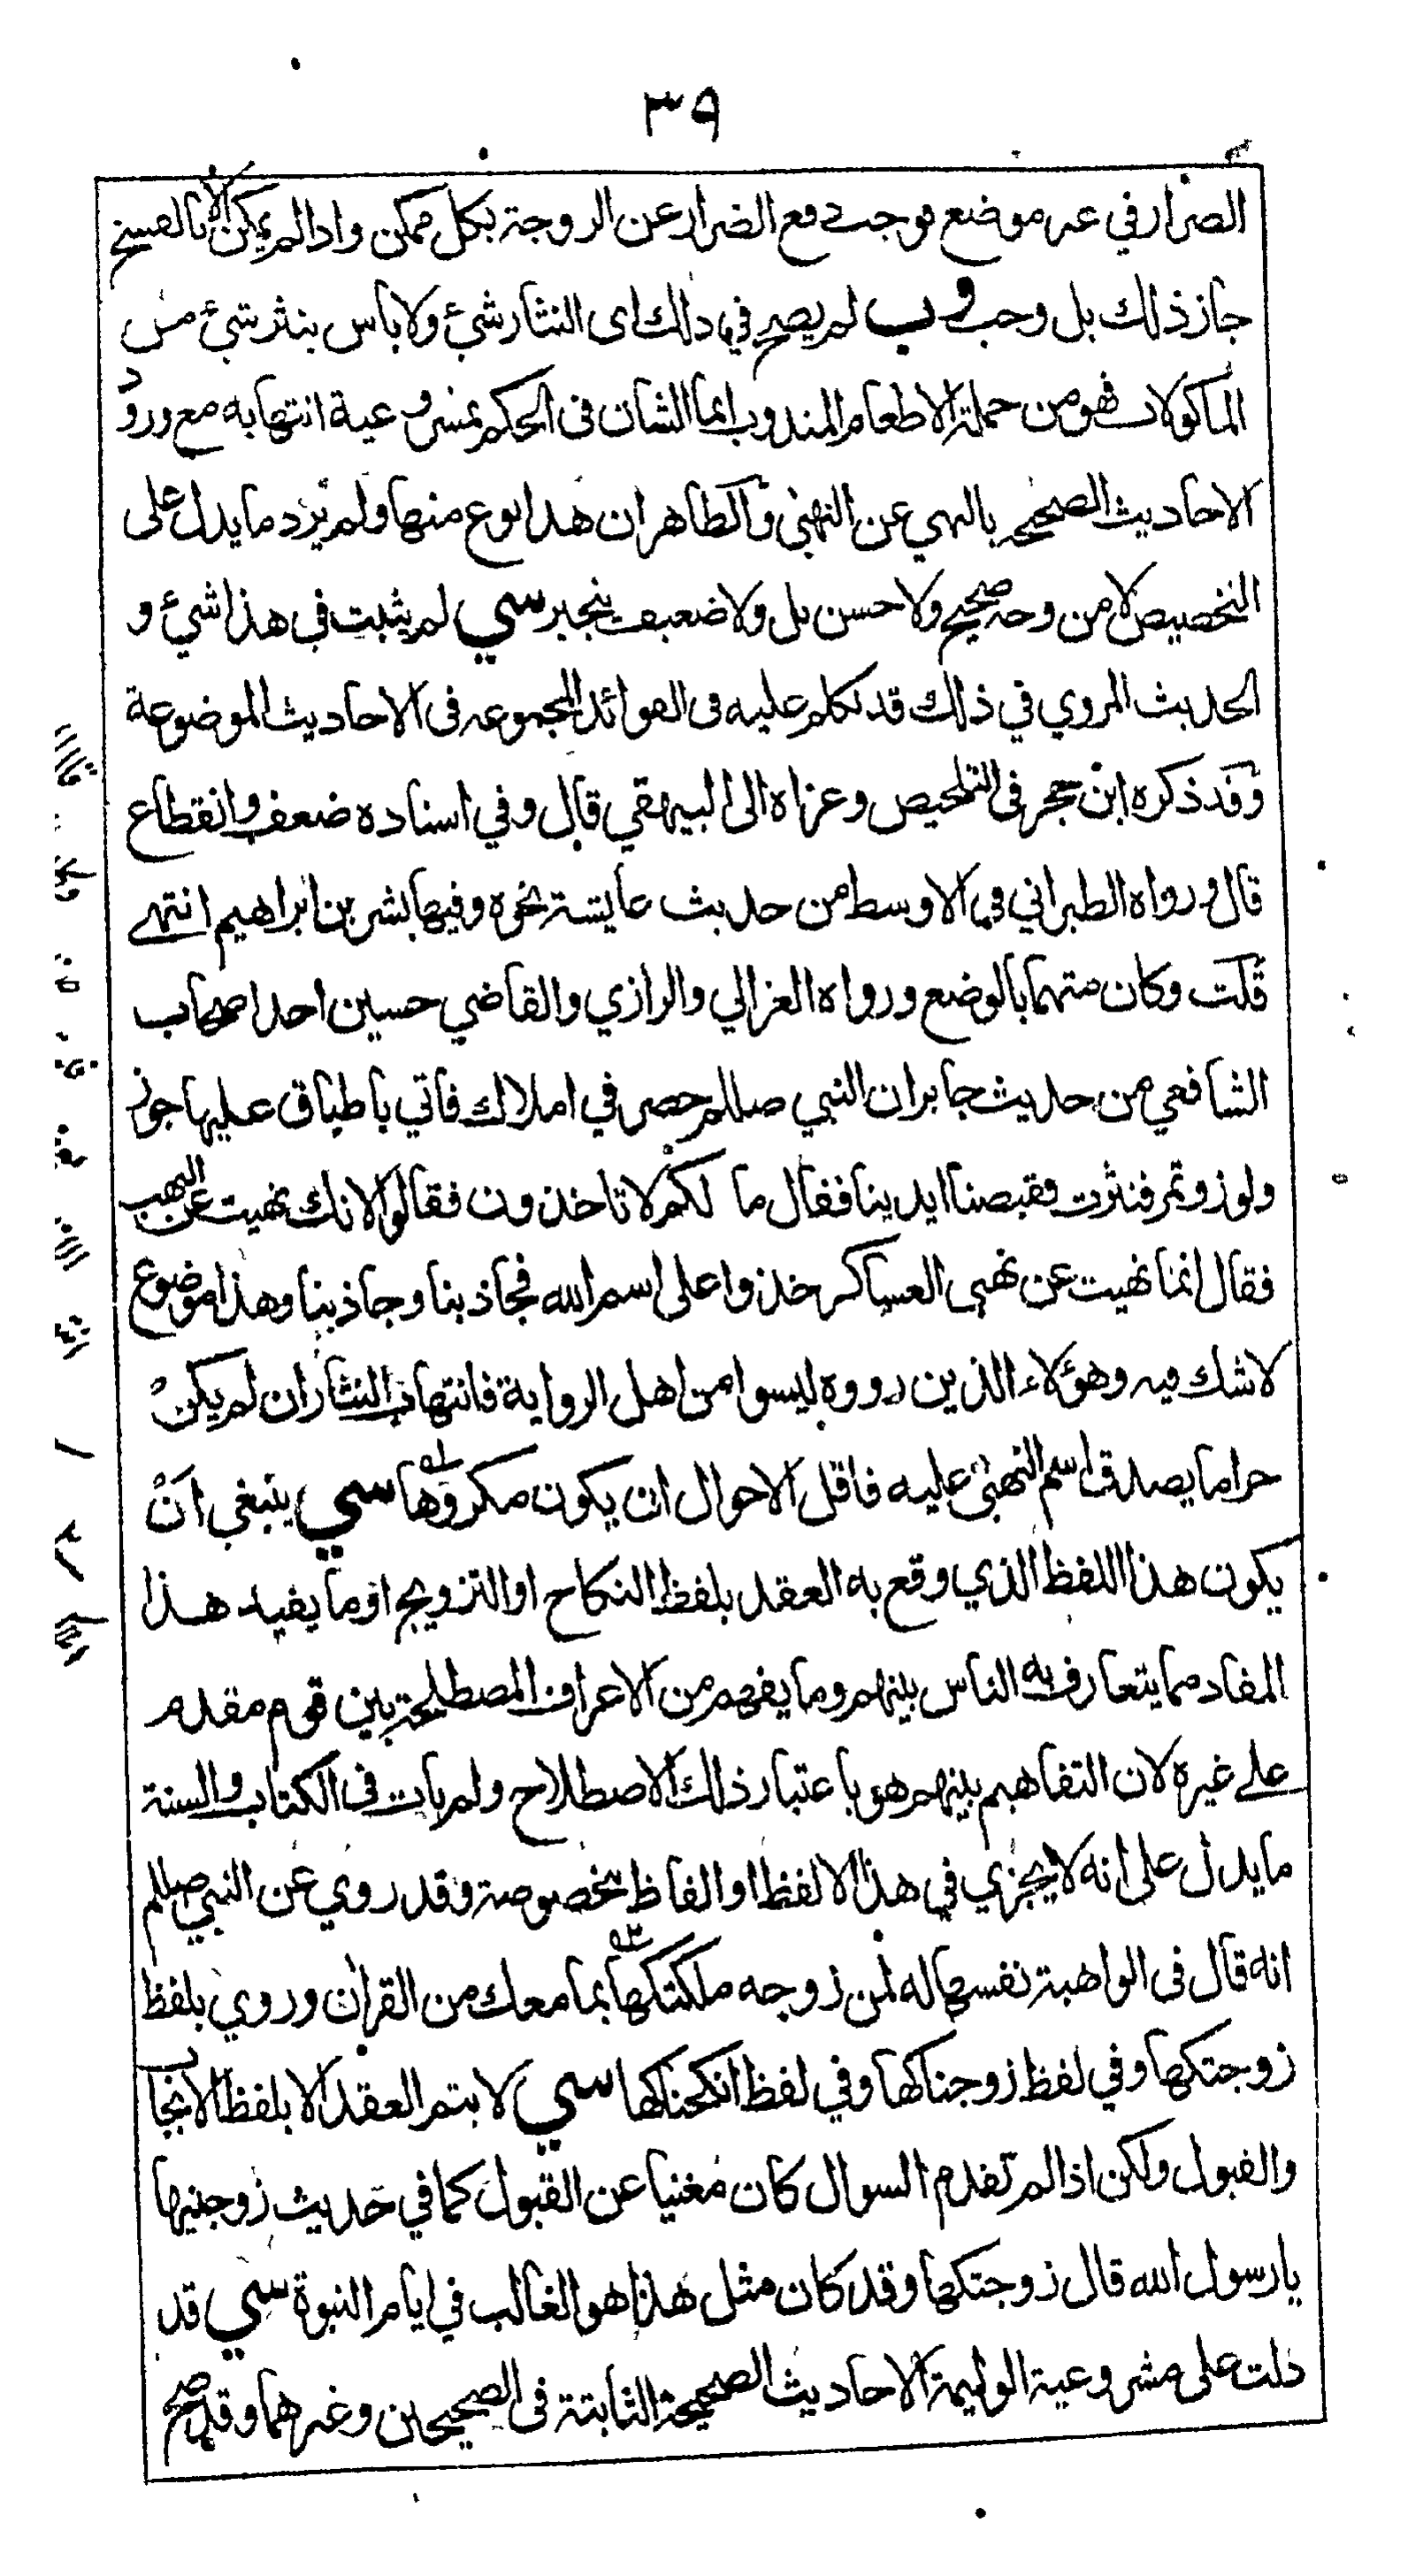 ٣٩
الضرار في غير موضع فوجب دفع الضرار عن الزوجة بكل ممكن واذا لم يمكن الا بالفسخ
جاز ذلك بل وجب وب لم يصح في ذلك اى النثار شئ ولا باس بنثر شئ من
الماكولات فهو من جملة الاطعام المندوب انما الشان فى الحكم بمشروعية انتهابه مع ورود
الاحاديث الصحيحه بالنهي عن النهبى والظاهر ان هذا نوع منها ولم يرد ما يدل على
التخصيص لا من وجه صحيح ولا حسن بل ولا ضعيف ينجبر سي لم يثبت في هذا شئ و
الحديث المروي في ذلك قد تكلم عليه فى الفوائد المجموعه فى الاحاديث الموضوعة
وقد ذكره ابن حجر فى التلخيص وعزاه الى البيهقي قال وفي اسناده ضعف وانقطاع
قال ورواه الطبراني في الاوسط من حديث عايشة نحوه وفيها بشر بن ابراهيم انتهى
قلت وكان متهما بالوضع ورواه الغزالي والرازي والقاضي حسين احد اصحاب
الشافعي من حديث جابر ان النبي صللم حضر في املاك فاتي باطباق عليها جوز
ولوز وتمر فنثرت فقبضنا ايدينا فقال ما لكم لا تاخذون فقالوا لانك نهيت عن النهب
فقال انما نهيت عن نهبى العساكر خذوا على اسم الله فجاذبنا وجاذبنا وهذا موضوع
لا شك فيه وهؤلاء الذين رووه ليسوا من اهل الرواية فانتهاب النثار ان لم يكن
حراما يصدق اسم النهبى عليه فاقل الاحوال ان يكون مكروها سي ينبغي ان
يكون هذا اللفظ الذي وقع به العقد بلفظ النكاح او التزويج او ما يفيد هذا
المفاد مما يتعارف به الناس بينهم وما يفهم من الاعراف المصطلحة بين قوم مقدم
على غيره لان التفاهم بينهم هو باعتبار ذلك الاصطلاح ولم يات فى الكتاب والسنة
ما يدل على انه لا يجزي في هذا الا لفظ او الفاظ مخصوصة وقد روي عن النبي صللم
انه قال فى الواهبة نفسها له لمن زوجه ملكتكها بما معك من القران وروي بلفظ
زوجتكها وفي لفظ زوجناكها وفي لفظ انكحناكها سي لا يتم العقد الا بلفظ الايجاب
والقبول ولكن اذا لم تقدم السوال كان مغنيا عن القبول كما في حديث زوجنيها
يا رسول الله قال زوجتكها وقد كان مثل هذا هو الغالب في ايام النبوة سي قد
دلت على مشروعية الوليمة الاحاديث الصحيحة الثابتة فى الصحيحين وغيرهما وقد صح